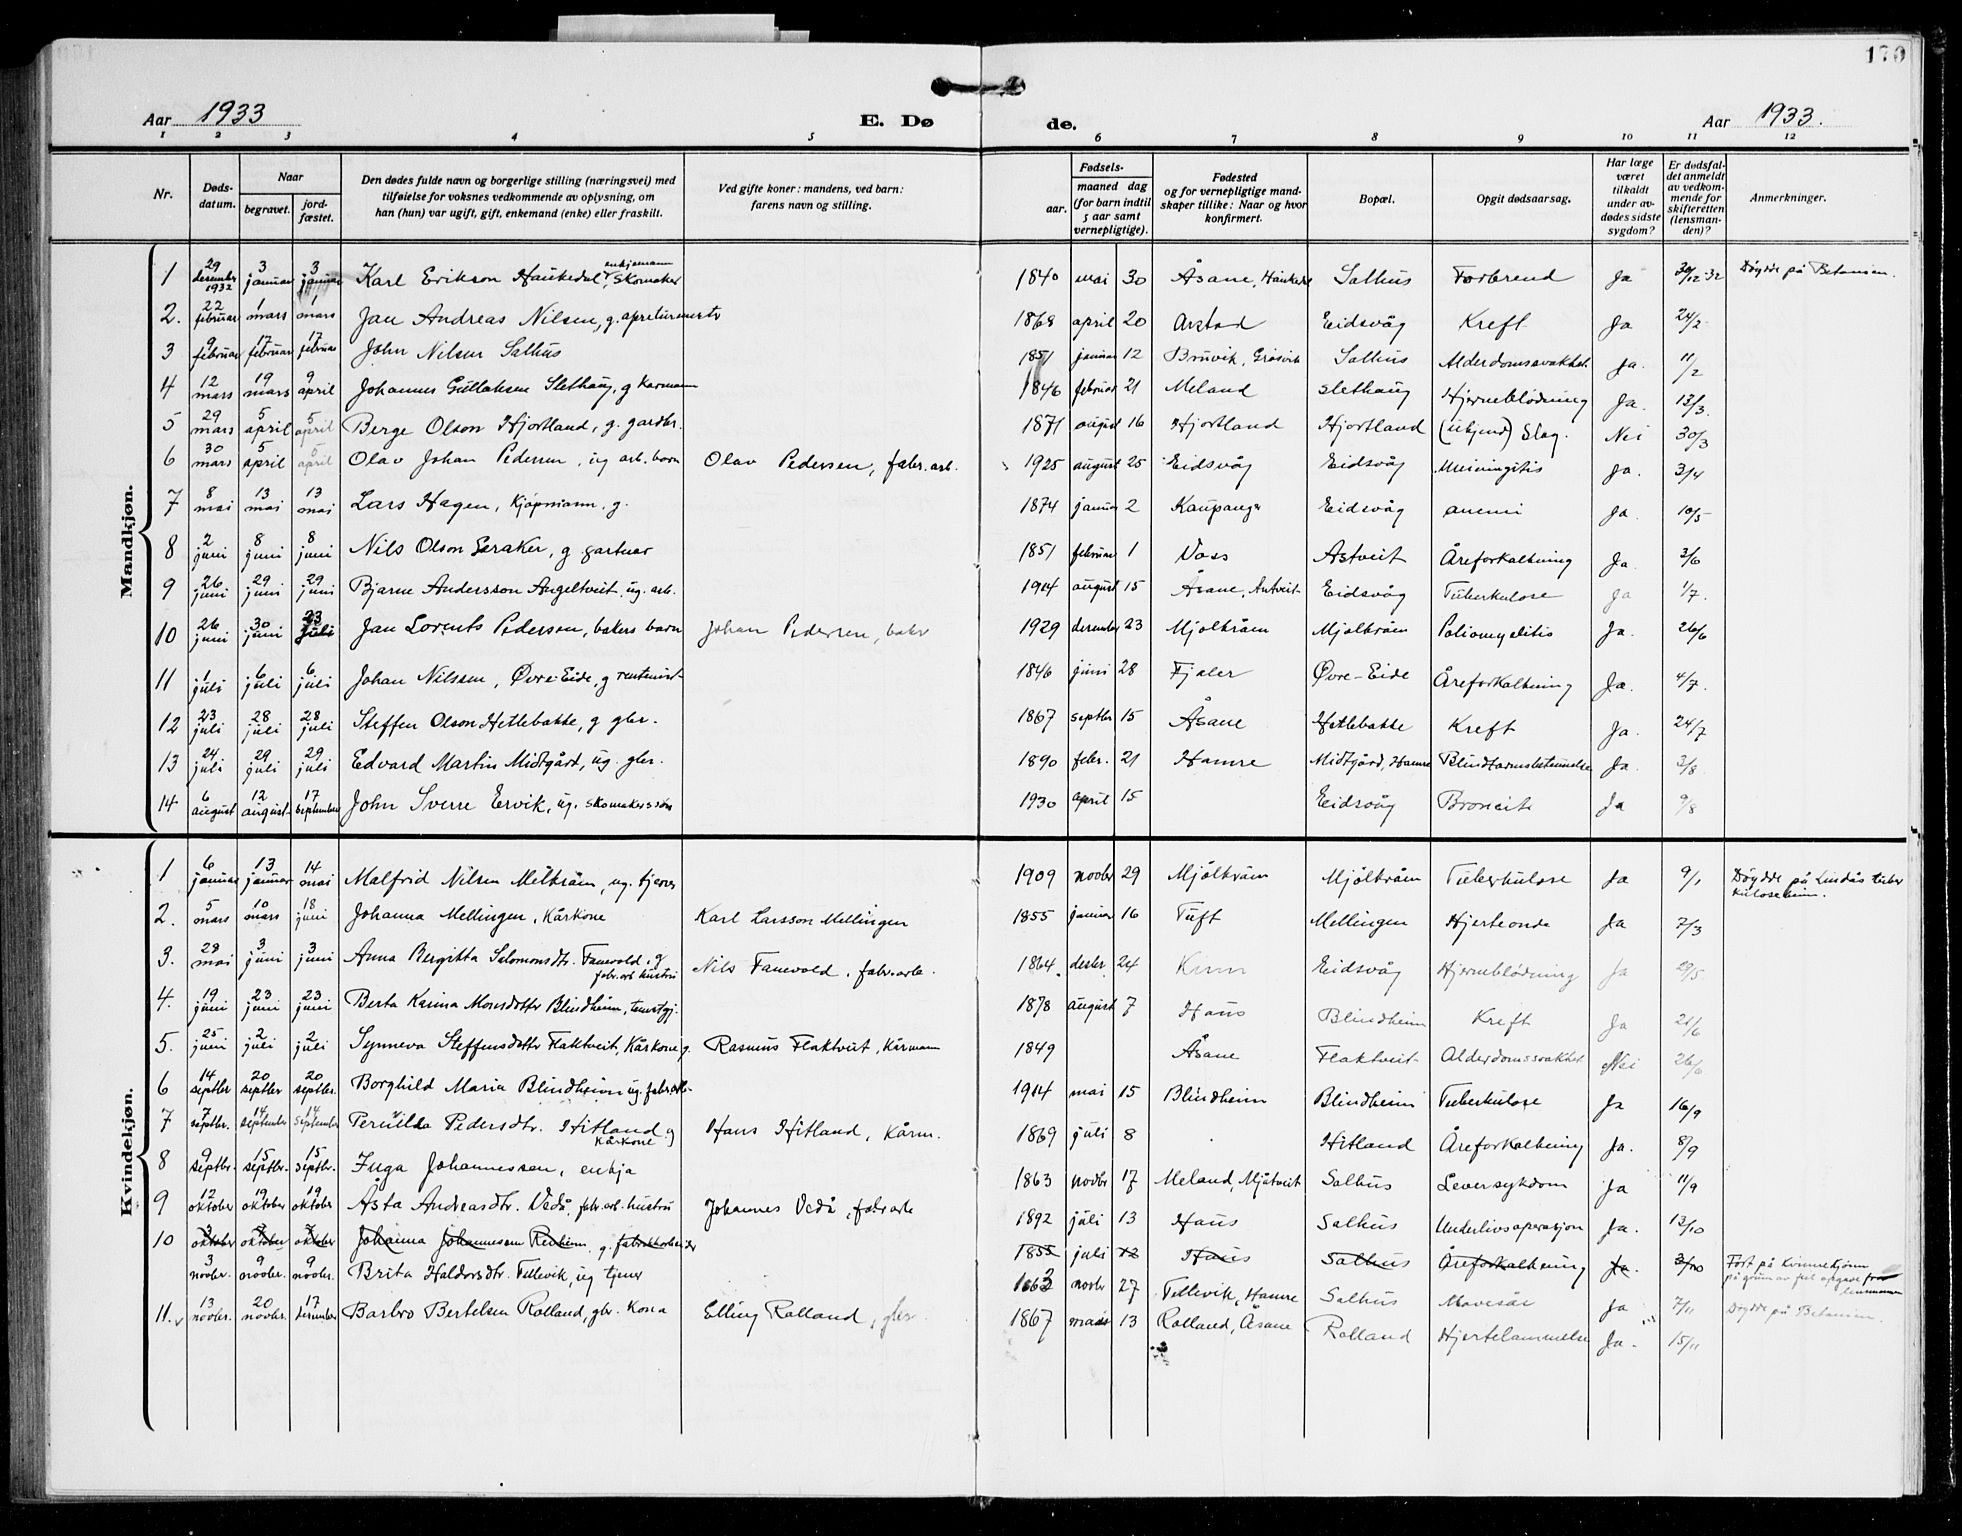 170
Aar 1933 E. Dø de. Aar 1933.
1 2 3 4 5 6 7 8 9 10 11 12
Nr. Døds-datum. Naar begravet. jord-fæstet. Den dødes fulde navn og borgerlige stilling (næringsvei) med tilføielse for voksnes vedkommende av oplysning, om han (hun) var ugift, gift, enkemand (enke) eller fraskilt. Ved gifte koner: mandens, ved barn: farens navn og stilling. Fødsels- aar. maaned dag (for barn indtil 5 aar samt vernepligtige). Fødested og for vernepligtige mand-skaper tillike: Naar og hvor konfirmert. Bopæl. Opgit dødsaarsag. Har læge været tilkaldt under av-dødes sidste sygdom? Er dødsfal-det anmeldt av vedkom-mende for skifteretten (lensman-den)? Anmerkninger.
Mandkjøn.
1 29 desember 1932 3 januar 3 januar Karl Erikson Haukedal, enkjemann skomaker 1840 mai 30 Åsane, Haukedal Salhus Forbrend Ja 30/12 32 Døydde på Betanien.
2. 22 februar 1 mars 1 mars Jan Andreas Nilsen, g. apreturmestr 1868 april 20 Årstad Eidsvåg Kreft Ja 24/2
3 9 februar 17 februar 17 februar John Nilsen Salhus 1851 januar 12 Bruvik, Gråsvik Salhus Alderdomssvakhet Ja. 11/2
4 12 mars 19 mars 9 april Johannes Gullaksen Slethaug, g karmann 1846 februar 21 Meland Slethaug Hjerneblödning Ja. 13/3.
5 29 mars 5 april 5 april Berge Olson Hjortland, g. gardbr. 1871 august 16 Hjortland Hjortland (ukjend) Slag. Nei 30/3
6 30 mars 5 april 5 april Olav Johan Pedersen, ug arb. barn Olav Pedersen, fabr. arb. 1925 august 25 Eidsvåg Eidsvåg Meiningitis Ja. 3/4
7 8 mai 13 mai 13 mai Lars Hagen, Kjøpmann, g. 1874 januar 2 Kaupanger Eidsvåg anemi Ja. 10/5
8 2 juni 8 juni 8 juni Nils Olson Seraker, g gartnar 1851 februar 1 Voss Åstveit Åreforkalkning Ja. 3/6
9 26 juni 29 juni 29 juni Bjarne Andersson Angeltveit, ug. arb. 1914 august 15 Åsane, Eidsvåg Tuberkulose Ja 1/7.
10 26 juni 30 juni 23 juli Jan Lorents Pedersen, bakers barn Johan Pedersen, bakr 1929 desember 23 Mjølkråen Mjølkråen Poliomyelitis Ja. 26/6
11 1 juli 6 juli 6 juli Johan Nilssen, Øvre-Eide, g rentenist 1846 juni 28 Fjaler Øvre-Eide Åreforkalkning Ja. 4/7.
12 23 juli 28 juli 28 juli Steffen Olson Hetlebakke, g gbr. 1867 septbr 15 Åsane Hetlebakke Kreft Ja. 24/7
13 24 juli 29 juli 29 juli Edvard Martin Midtgård, ug. gbr. 1890 febr. 21 Hamre Midtgård, Hamre Blindtarmsbetennelse Ja. 3/8.
14 6 august 12 august 17 september John Sverre Ervik, ug. skomakerssøn 1930 april 15 Eidsvåg Bronkit Ja 9/8
Kvindekjøn.
1 6 januar 13 januar 14 mai Malfrid Nilsen Mølkråen, ug. tjener 1909 novbr 29 Mjølkråen Mjølkråen Tuberkulose Ja 9/1 Døydde på Lindås tuber kuloseheim.
2. 5 mars 10 mars 18 juni Johanna Mellingen, Kårkone Karl Larsson Mellingen 1855 januar 16 Tuft Mellingen Hjerteonde Ja 7/3
3. 28 mai 3 juni 3 juni Anna Bergitta Salomonsdtr. Fanevold, g fabr. arb hustru Nils Fanevold, fabr. arb. 1864. desbr. 24 Kinn Eidsvåg Hjerneblødning Ja 29/5.
4. 19 juni 23 juni 23 juni Berta Karina Monsdotter Blindheim, 1878 august 7 Haus Blindheim Kreft Ja 21/6
5. 25 juni 2 juli 2 juli Synneva Steffensdottr Flaktveit, Kårkone g. Rasmus Flaktveit, Kårmann 1849 Åsane Flaktveit Alderdomssvakhet Nei 26/6
6 14 septbr 20 septbr 20 septbr Borghild Maria Blindheim ug. fabr. arb. 1914 mai 15 Blindheim Blindheim Tuberkulose Ja 16/9
7 7 septbr. 14 september 14 september Pernilla Pedersdtr. Hitland g Kårkone Hans Hitland, Kårm. 1869 juli 8 Hitland Åreforkalkning Ja. 8/9
8 9 septbr. 15 septbr. 15 septbr. Inga Johannessen, enkja 1863 novbr 17 Meland, Mjåtveit Salhus Leversykdom Ja 11/9
9 12 oktober 19 oktober 19 oktober Åsta Andreasdtr. Vedå, fabr. arb. hustru Johannes Vedå, fabr arb 1892 juli 13 Haus Salhus Underlivsoperasjon Ja. 13/10
10 oktober oktober oktober Johanna Johannessen g. fabrikkarbeider 1855 juli 12 Haus Salhus Åreforkalkning Ja. 3/10 Ført på Kvinnekjønn på grunn av feil opgave fra lensmannen
3 novbr. 9 novbr. 9 novbr. Brita Haldorsdtr. Tellevik, ug tjener 1863 novbr 27 Tellevik, Hamre Salhus Mavesår Ja 7/11 Døydde på Betanien.
11. 13 novbr. 20 novbr. 17 desember Barbro Bertelsen Rolland, gbr. Kona Elling Rolland, gbr. 1867 mars 13 Rolland, Åsane Rolland Hjertelammelse Ja. 15/11